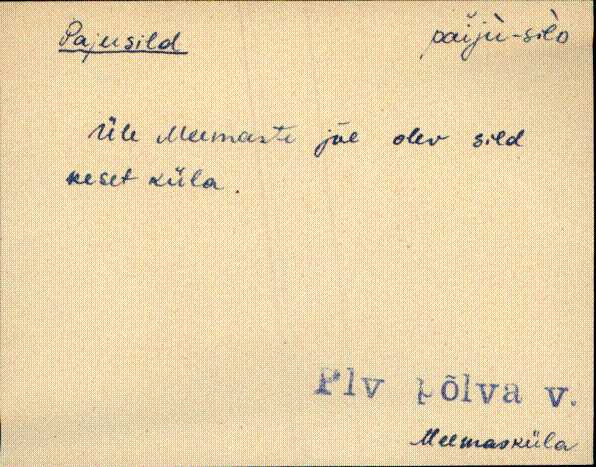 Pajusild
pαijù-sìlD
Üle Meemaste jõe olev sild
keset küla.
Plv Põlva v.
Meemasküla